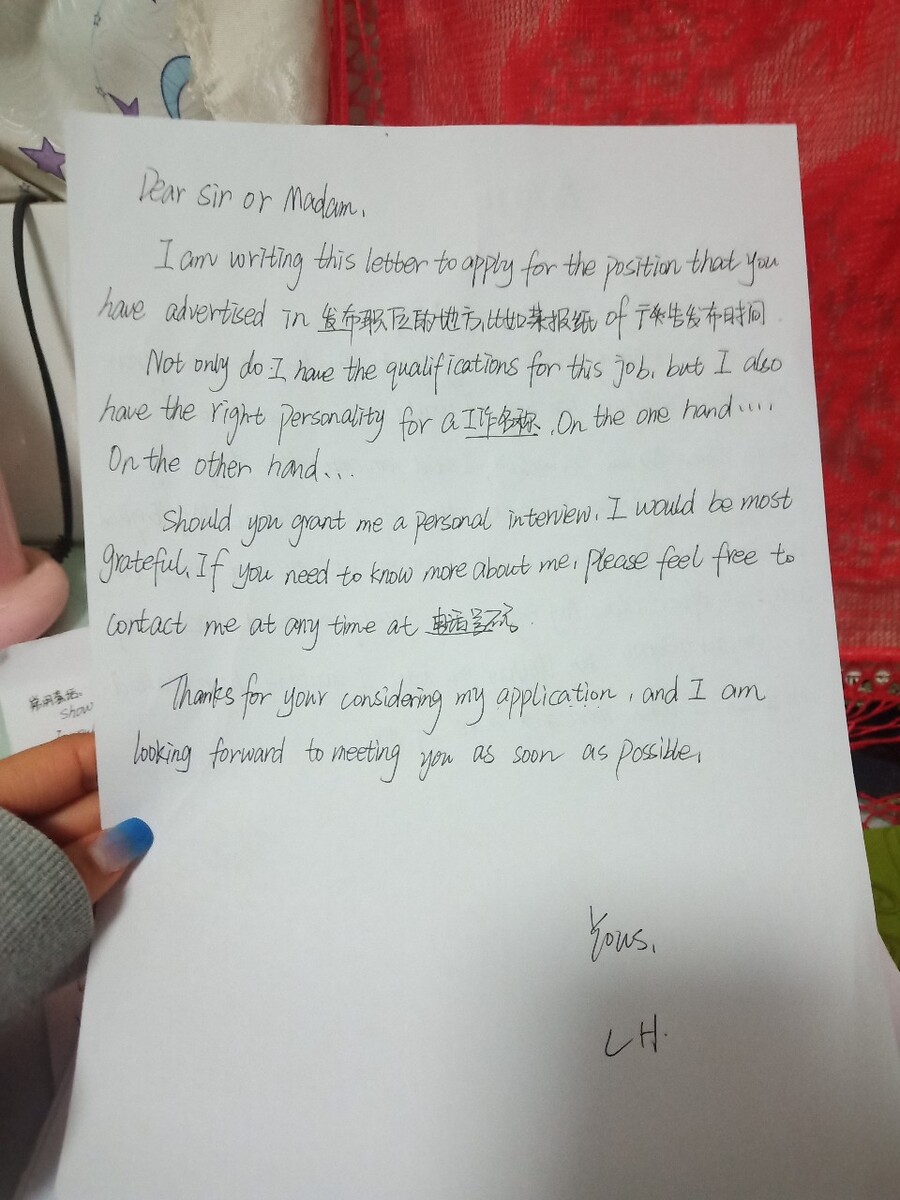 Dear Sir or Madam,
I am writing this letter to apply for the position that you
have advertised in 发布职位的地方,比如某报纸 of 广告发布时间
Not only do I have the qualifications for this job, but I also
have the right personality for a 工作名称. On the one hand....
On the other hand...
Should you grant me a personal interview, I would be most
grateful. If you need to know more about me, please feel free to
contact me at any time at 电话号码.
Thanks for your considering my application, and I am
looking forward to meeting you as soon as possible.
Yous,
LH.
show